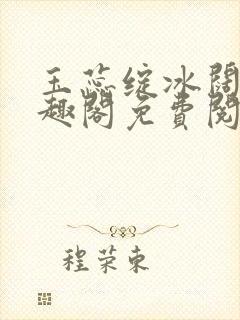 玉蕊绽冰阔
趣阁免费阅
程荣东